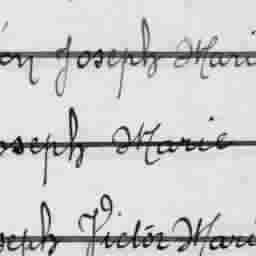 ón Joseph Mari
oseph Marie
seph Victór Mari